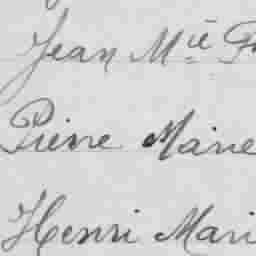 Jean Mie
Pierre Marie
Henri Mari